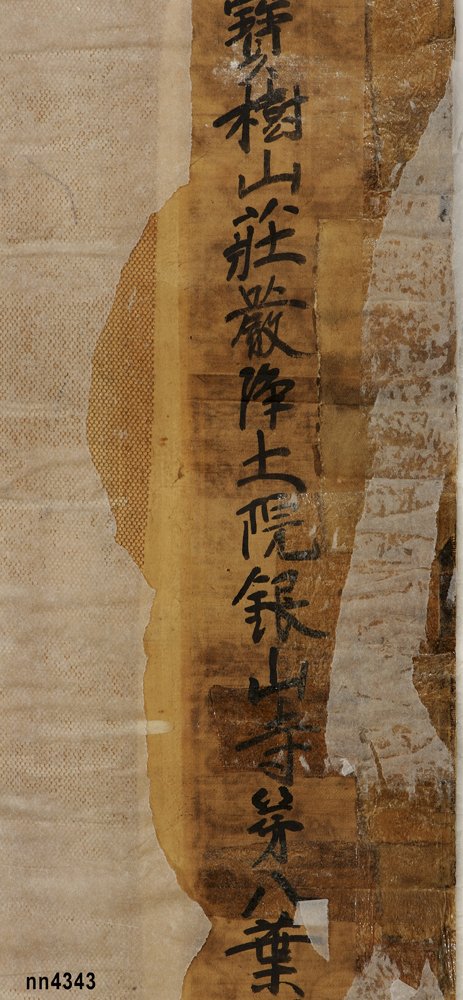 寳樹山莊嚴浄土院銀山寺苐八葉
nn4343